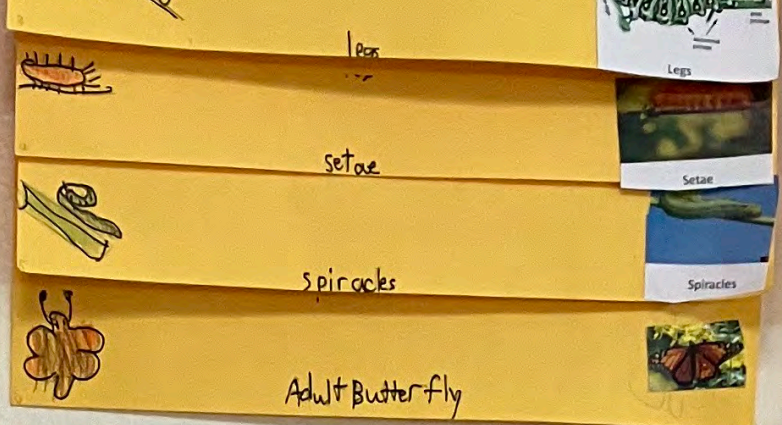 legs
Legs
setae
Setae
spiracles
Spiracles
Adult Butterfly